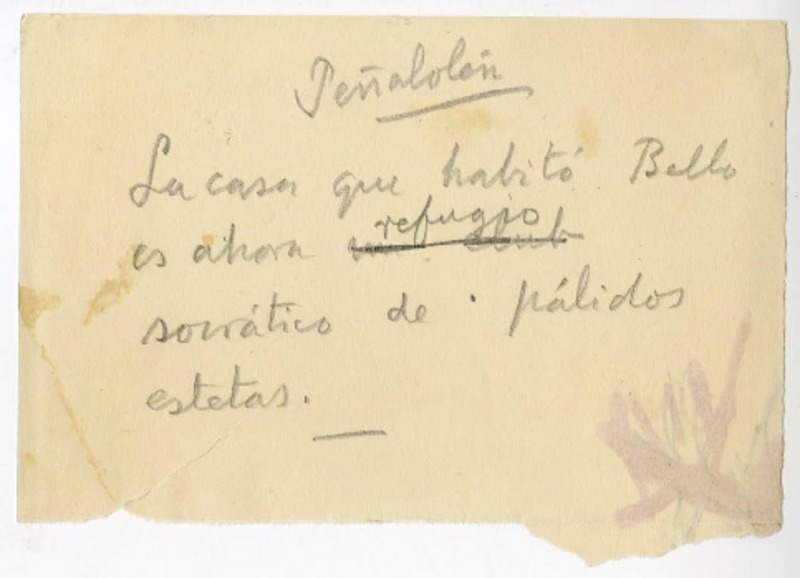 Peñalolén
La casa que habitó Bello
es ahora un club refugio
socrático de pálidos
estetas.